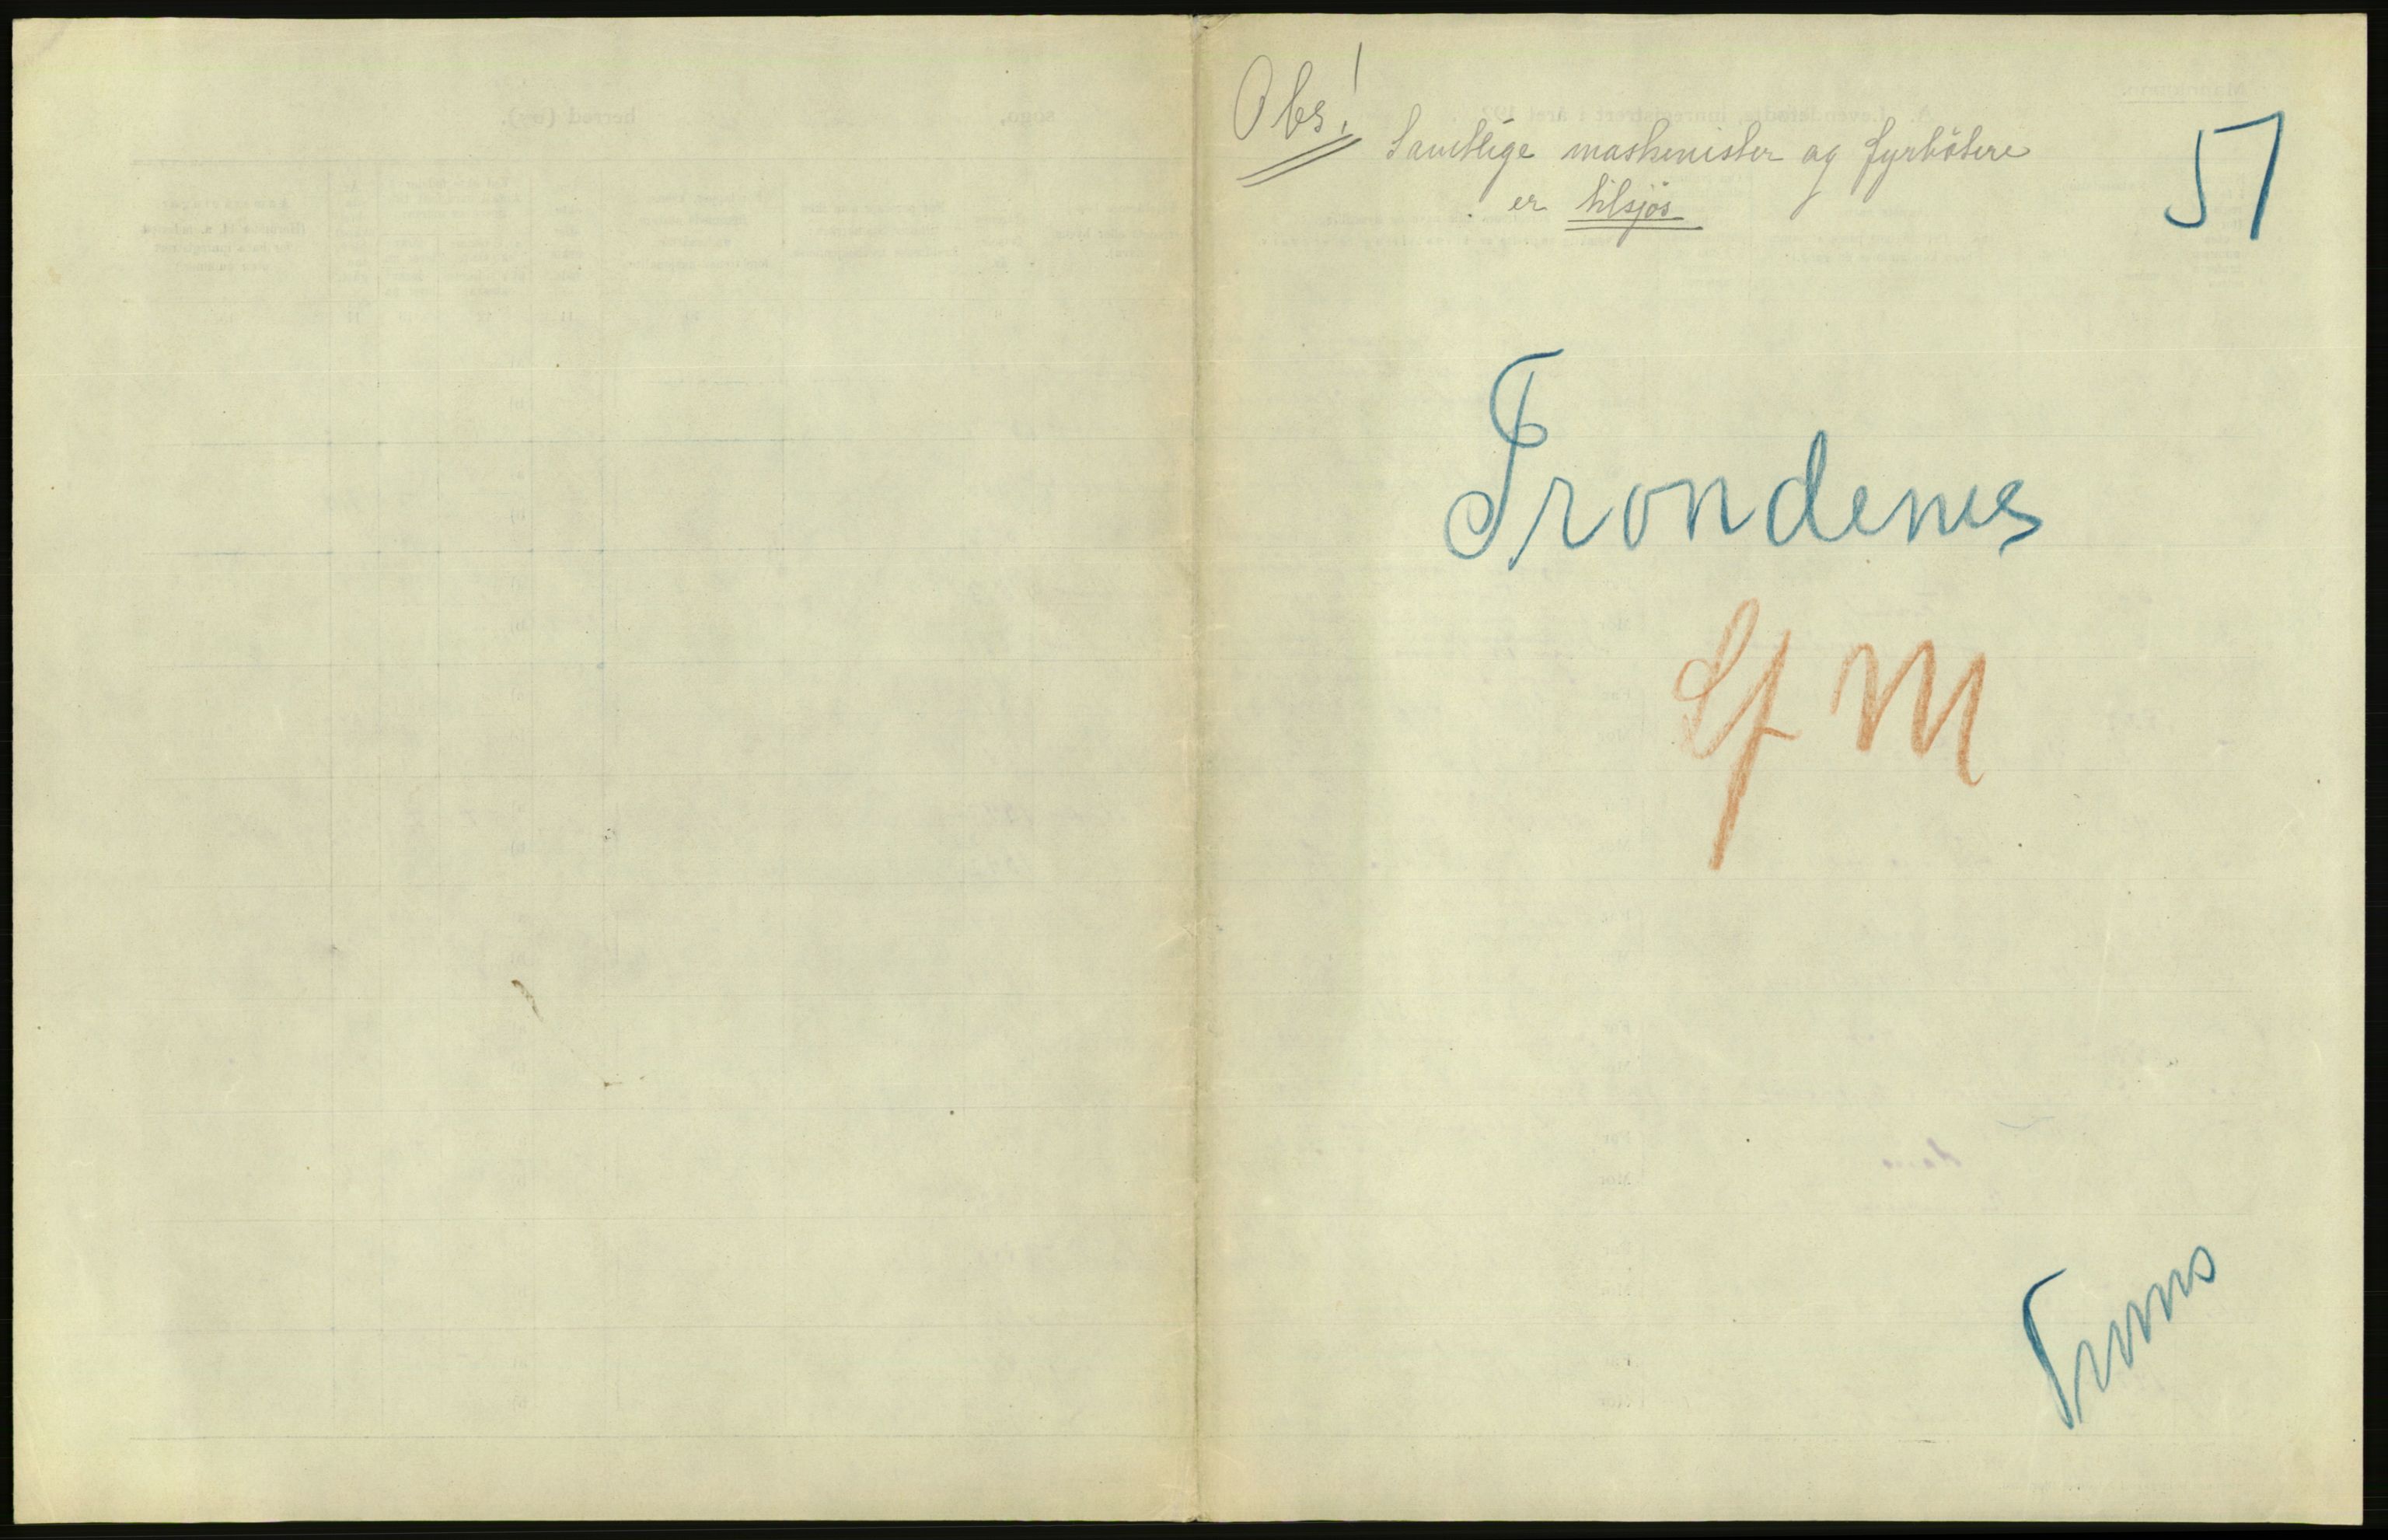 Obs!
Samtlige maskinister og fyrbötere
er tilsjøs
57
Trondenes
Lf M
Troms